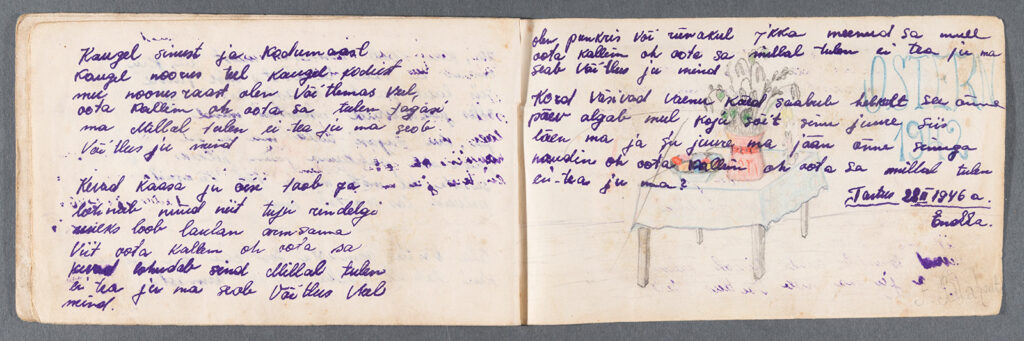 Kaugel sinust ja kodumaast
kaugel noorus teel kaugel kodust
mu noorusraast olen Võitlemas veel,
oota kallim oh oota sa tulen tagasi
ma Millal tulen ei tea ju ma seob
Võitlus ju mind
Kevad kaasa ju õisi toob ga
nüüd neit tuju rindelgi
loob laulan armsama
Viit oota kallim oh oota sa
kevad sind Millal tulen
ei tea ju ma seob Võitlus Veel
mind.
olen punkris või rünnakul ikka meenud sa mull
oota kallim oh oota sa millal tulen ei tea ju ma
seab Võitlus ju mind
Kord Väsivad Vaenu käed saabub helgelt see õnne
päev algab mul koju sõit sinu juure siis
läen ma ja ju juure ma jään õnne sinuga
naudin oh oota kallim oh oota sa millal tulen
ei-tea ju ma?
Tartus 22II 1946 a.
Endla.
1942